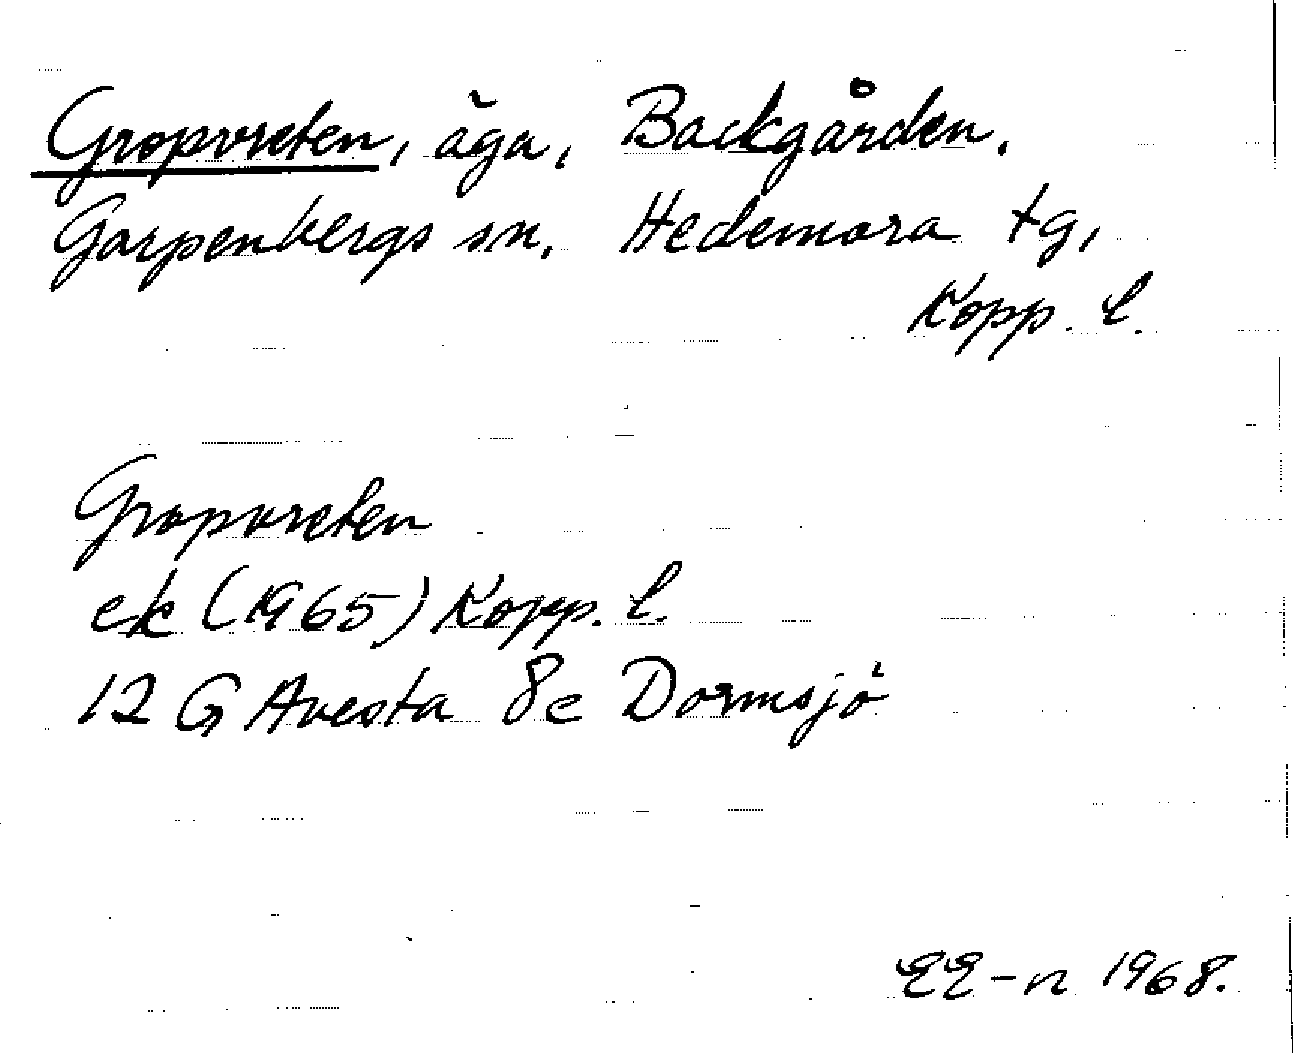 Gropvreten, äga, Backgården,
Garpenbergs sn, Hedemora tg,
Kopp. l.
Gropvreten
ek (1965) Kopp. l.
12 G Avesta 8e Dormsjö
EE-n 1968.